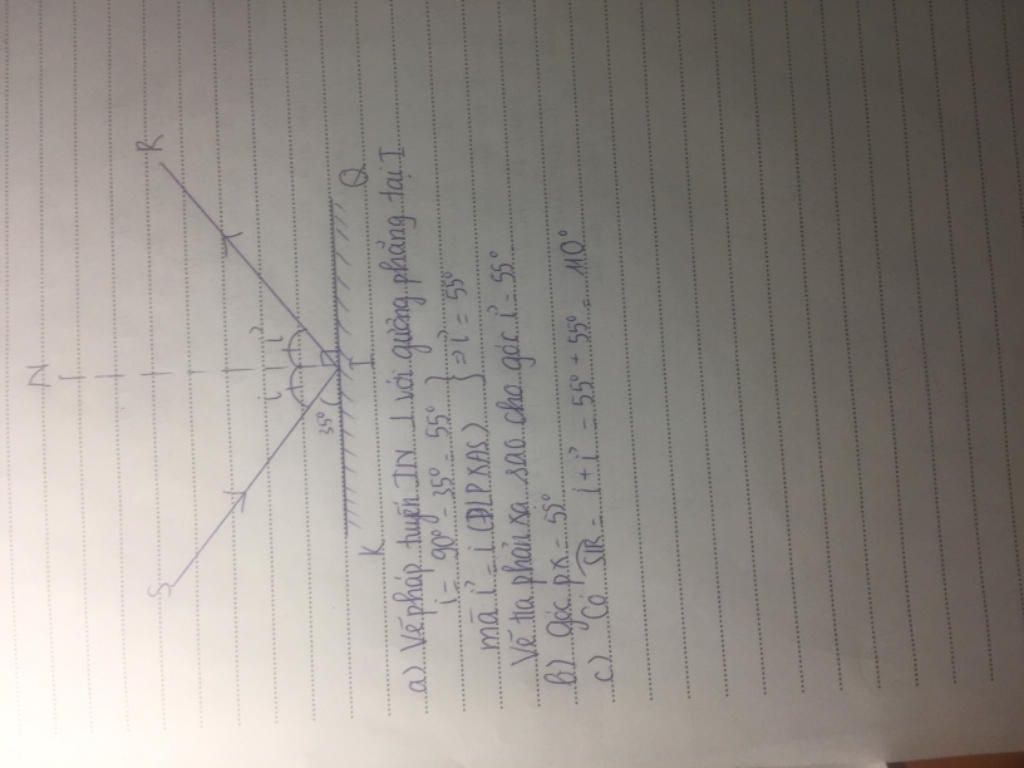 N
S
R
i i'
35°
K I Q
a) Vẽ pháp tuyến IN ⊥ với gương phẳng tại I
i = 90° - 35° = 55°
mà i' = i (ĐLPXAS) } => i' = 55°
Vẽ tia phản xạ sao cho góc i' = 55°
b) góc px = 55°
c) Có SIR = i + i' = 55° + 55° = 110°